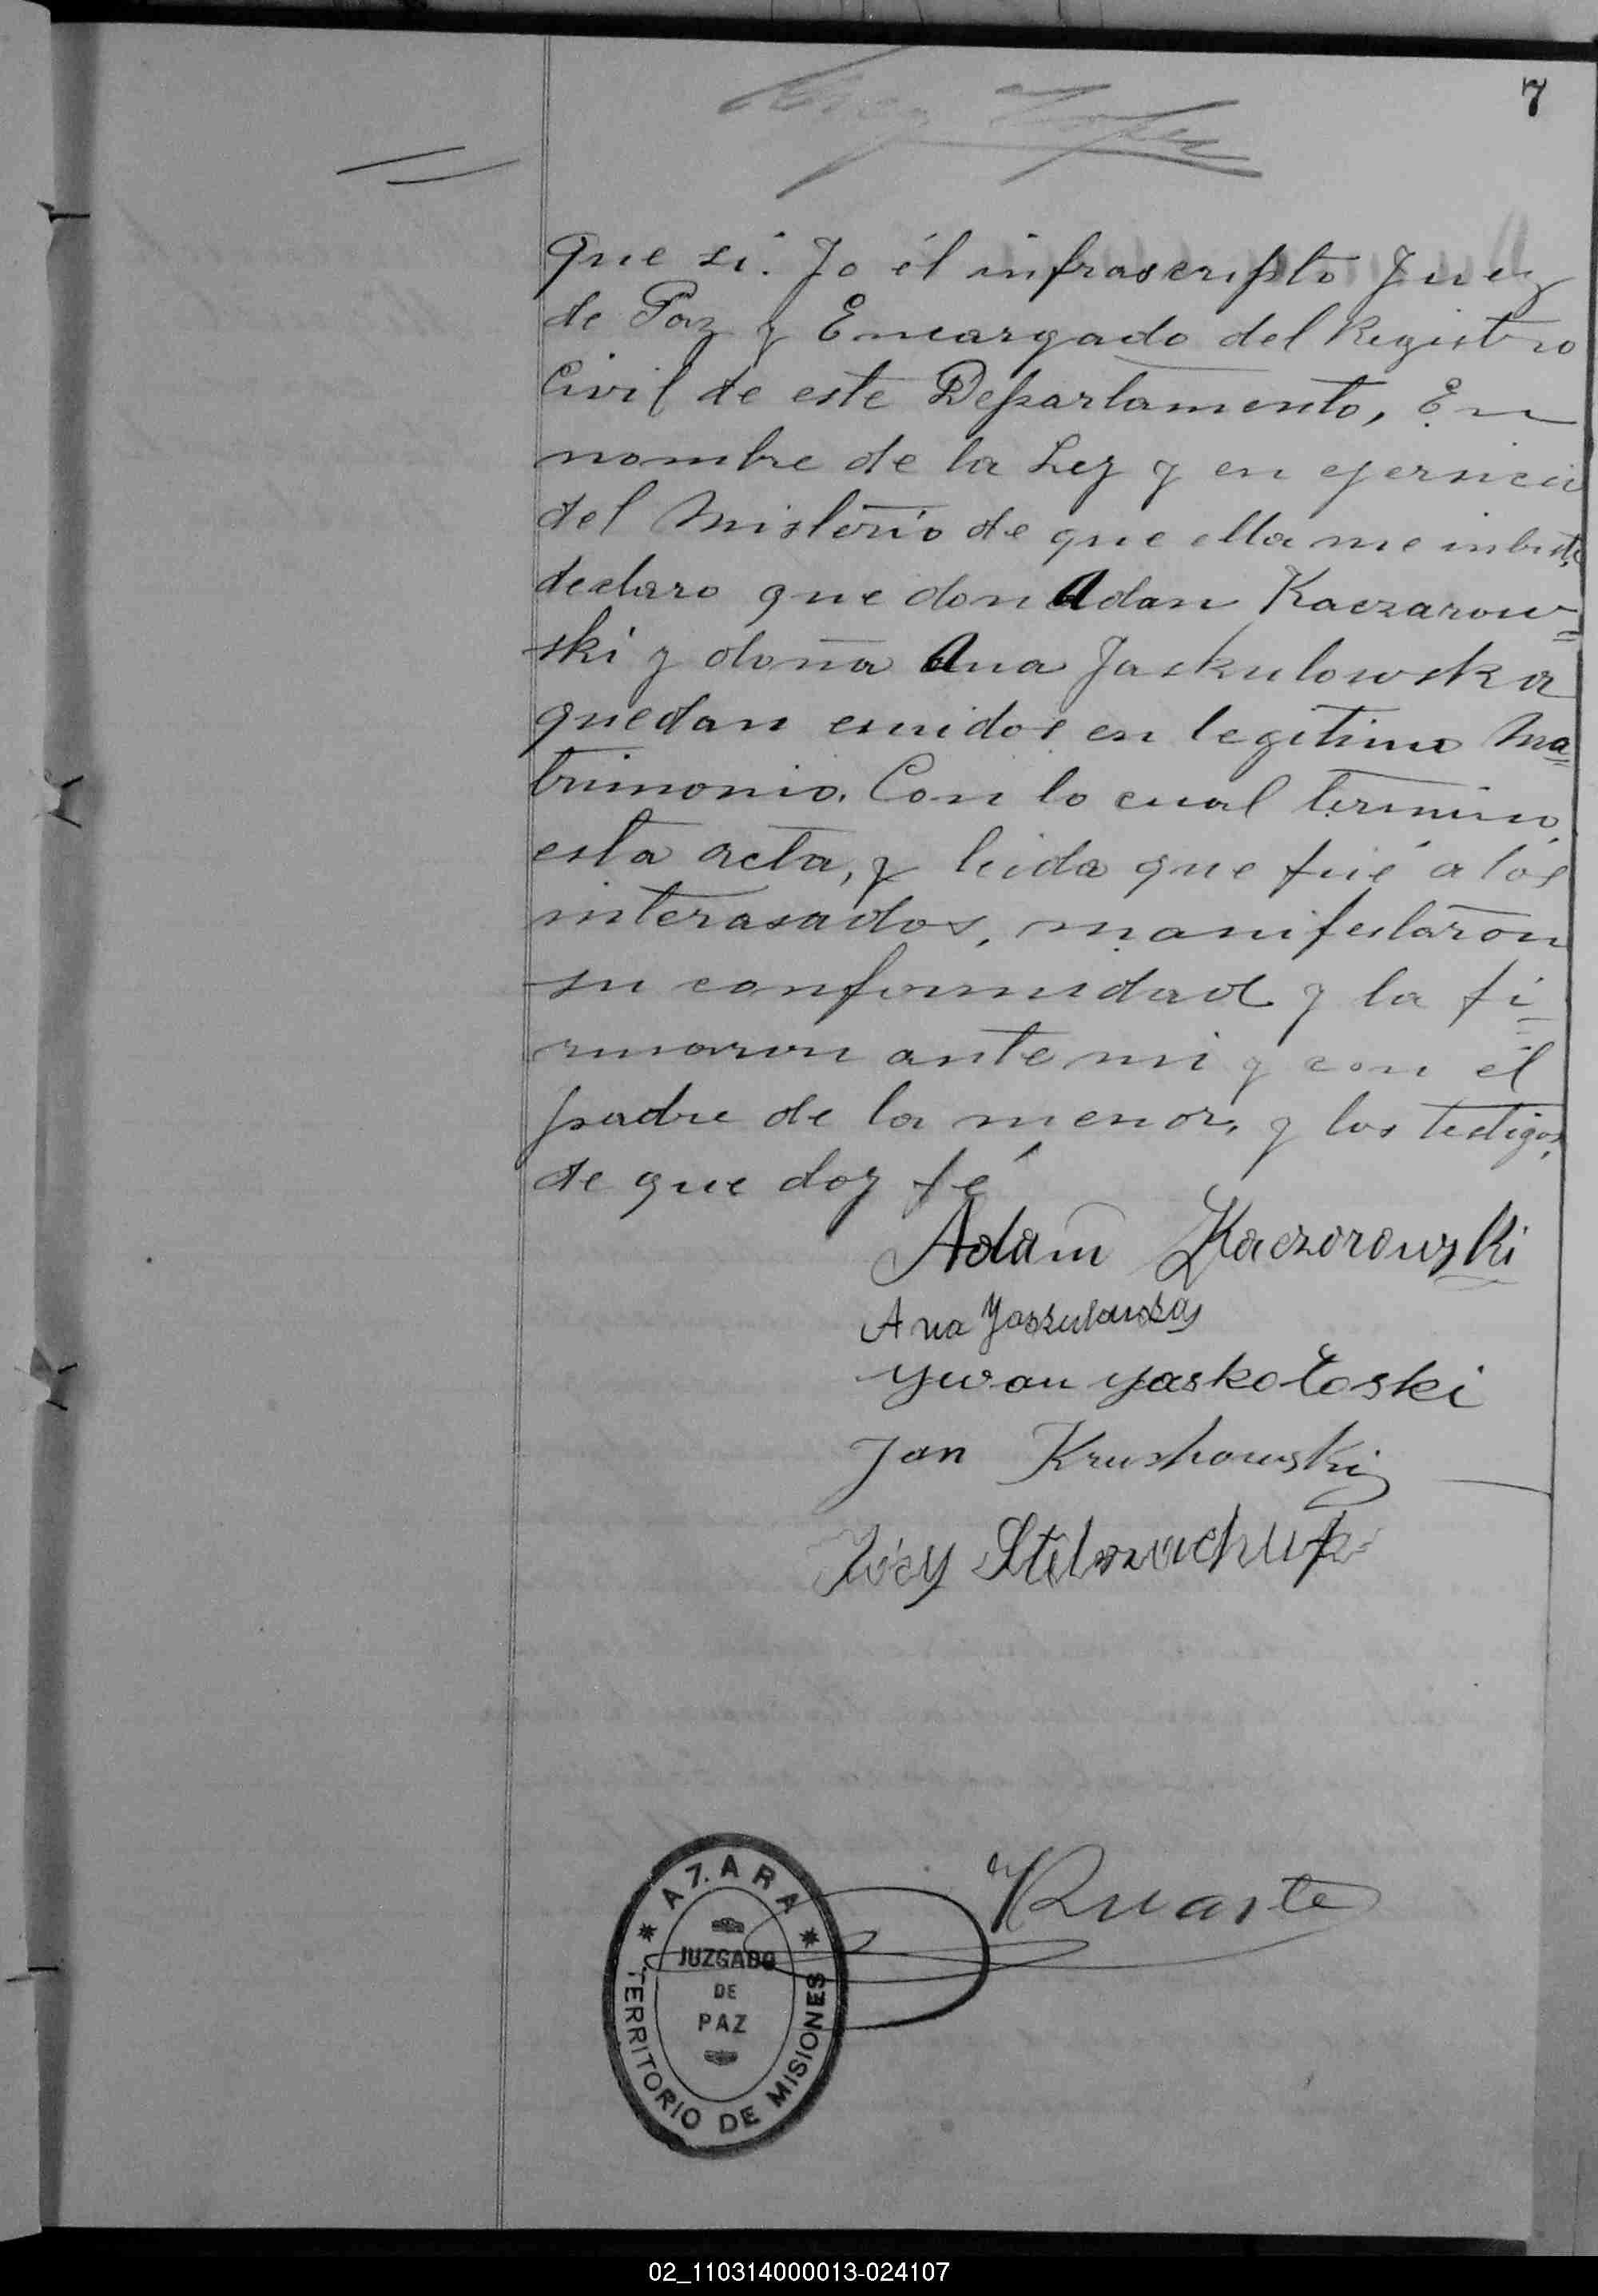 7
que si. Jo él infrascripto Juez
de Paz y Encargado del Registro
Civil de este Departamento, En
nombre de la Ley y en ejersicio
del Misterio de que ella me inbiste,
declaro que don Adan Kaczarow=
ski y doña Ana Jaskulowska
quedan eunidos en legitimo Ma=
trimonio. Con lo cual termino
esta acta, y leida que fué a los
interasados, manifestaron
su conformidad y la fi=
rmaron ante mi y con él
padre de la menor, y los testigos,
de que doy fé
Adam Kaczorowski
Ana
Ywan Yaskotoski
Jan Kruskowski
AZARA
JUZGADO
DE
PAZ
TERRITORIO DE MISIONES
02_110314000013-024107